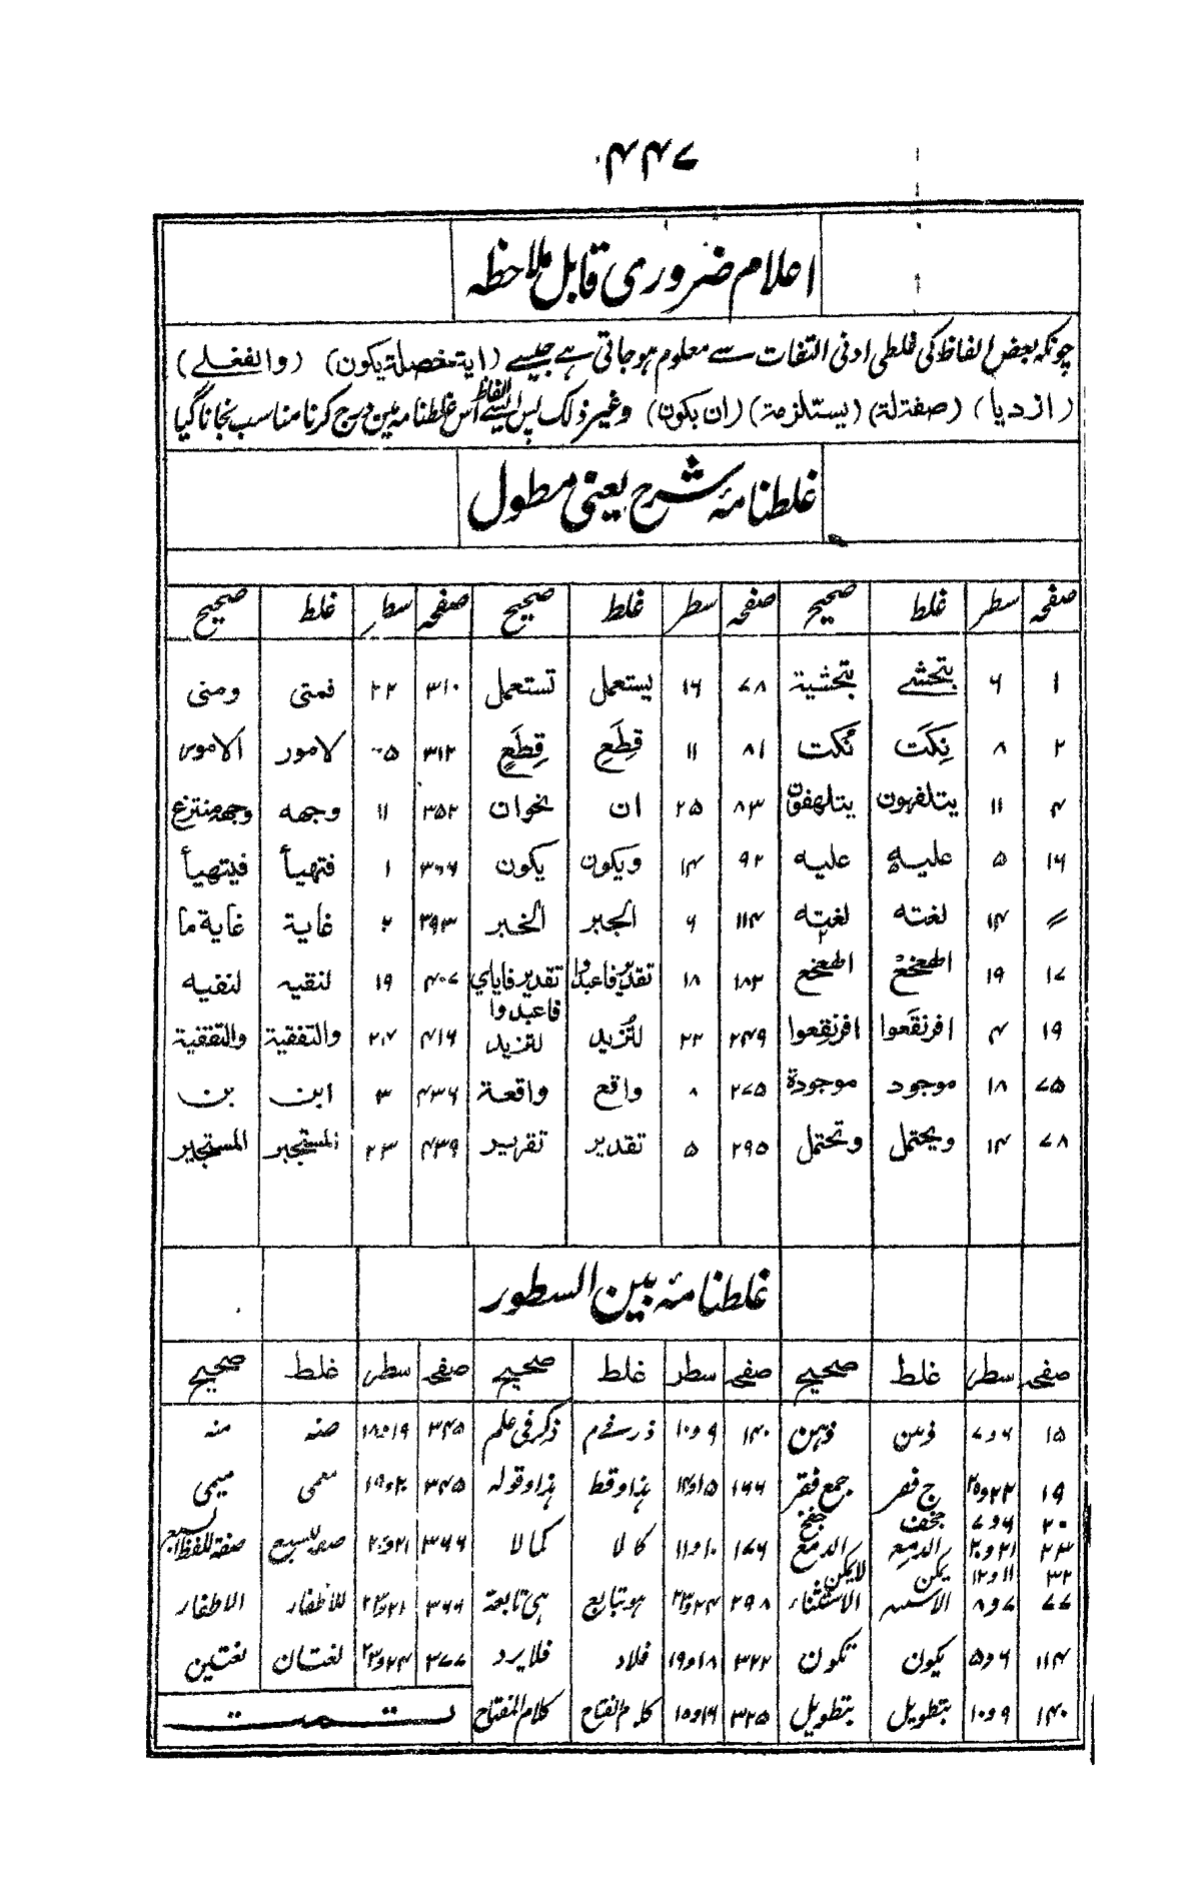 ۴۴۷
اعلام ضروری قابل ملاحظہ
چونکہ بعض الفاظ کی غلطی ادنی التفات سے معلوم ہو جاتی ہے جیسے (ایتہ خصلۃ یکون) (والفغلے)
(رازدیا) (صفتلۃ) (یستلزمۃ) (ان بکون) وغیر ذلک پس ایسے الفاظ اس غلطنامہ مین درج کرنا مناسب نجانا گیا
غلطنامۂ شرح یعنی مطول
صفحہ سطر غلط صحیح صفحہ سطر غلط صحیح صفحہ سطر غلط صحیح
۱ ۶ بتحشے بتحشیۃ ۷۸ ۱۶ یستعمل تستعمل ۳۱۰ ۲۲ فمتی ومنی
۲ ۸ نِکَت نُکت ۸۱ ۱۱ قطَعٍ قِطَعٍ ۳۱۲ ۵ لامور الامور
۴ ۱۱ یتلفہون یتلہفون ۸۳ ۲۵ ان نحوان ۳۵۲ ۱۱ وجھہ وجھہ منتزع
۱۶ ۵ علیہ علیہ ۹۲ ۱۴ ویکون یکون ۳۶۶ ۱ فتهیأ فیتهیأ
〃 ۱۴ لغتہ لغتہ ۱۱۴ ۶ الجبر الخبر ۳۹۳ ۲ غایۃ غایۃ ما
۱۷ ۱۹ الهعخع الهعخع ۱۸۳ ۱۸ تقدیر فاعبدوا تقدیر فایای فاعبدوا ۴۰۷ ۱۹ لنقیہ لنفیہ
۱۹ ۴ افرنقَعوا افرنقِعوا ۲۴۹ ۲۲ للتزید لتزید ۴۱۶ ۲۷ والتفقیۃ والتقفیۃ
۷۵ ۱۸ موجود موجودۃ ۲۷۵ ۸ واقع واقعۃ ۴۳۶ ۳ ابن بن
۷۸ ۱۴ ویحتمل وتحتمل ۲۹۵ ۵ تقدیر تقریر ۴۳۹ ۲۳ المستجبر المستجیر
غلطنامۂ بین السطور
صفحہ سطر غلط صحیح صفحہ سطر غلط صحیح صفحہ سطر غلط صحیح
۱۵ ۶و۷ ذہن ذہن ۱۴۰ ۹و۱۰ ذرفے م ذکر فی علم ۳۴۵ ۱۸و۱۹ صنہ منہ
۱۹ ۲۲و۲۵ ج فقر جمع فقر ۱۶۶ ۱۴و۱۵ ہذا وقط ہذا وقولہ ۳۴۵ ۱۹و۲۰ معمی میمی
۲۰ ۶و۷ جخف جفخ
۲۳ ۲۰و۲۱ الدمع الدمع ۱۷۶ ۱۰و۱۱ کالا کمالا ۳۶۶ ۲۰و۲۱
۳۲ ۱۱و۱۲ یکن لایکن
۷۷ ۷و۸ الاستثناء ۲۹۸ ۲۳و۲۴ ہو تابع ہی تابعۃ ۳۶۶ ۲۱و۲۲ للاظفار الاظفار
۱۱۴ ۵و۶ یکون تکون ۳۲۲ ۱۸و۱۹ فلاد فلایرد ۳۷۷ ۲۳و۲۴ لغتان لغتین
۱۴۰ ۹و۱۰ بتطویل بتطویل ۳۲۵ ۱۵و۱۶ کلام لفتاح کلام المفتاح
تمت